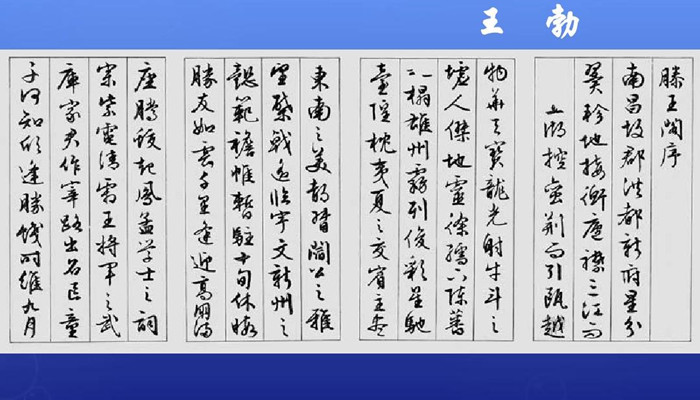 王 勃
滕王閣序
南昌故郡洪都新府星分
翼軫地接衡廬襟三江而
五湖控蠻荊而引甌越
物華天寶龍光射牛斗之
墟人傑地靈徐孺下陳蕃
之榻雄州霧列俊彩星馳
臺隍枕夷夏之交賓主盡
東南之美都督閻公之雅
望棨戟遙臨宇文新州之
懿範襜帷暫駐十旬休暇
勝友如雲千里逢迎高朋滿
座騰蛟起鳳孟学士之詞
宗紫電清霜王將軍之武
庫家君作宰路出名區童
子何知躬逢勝餞時維九月